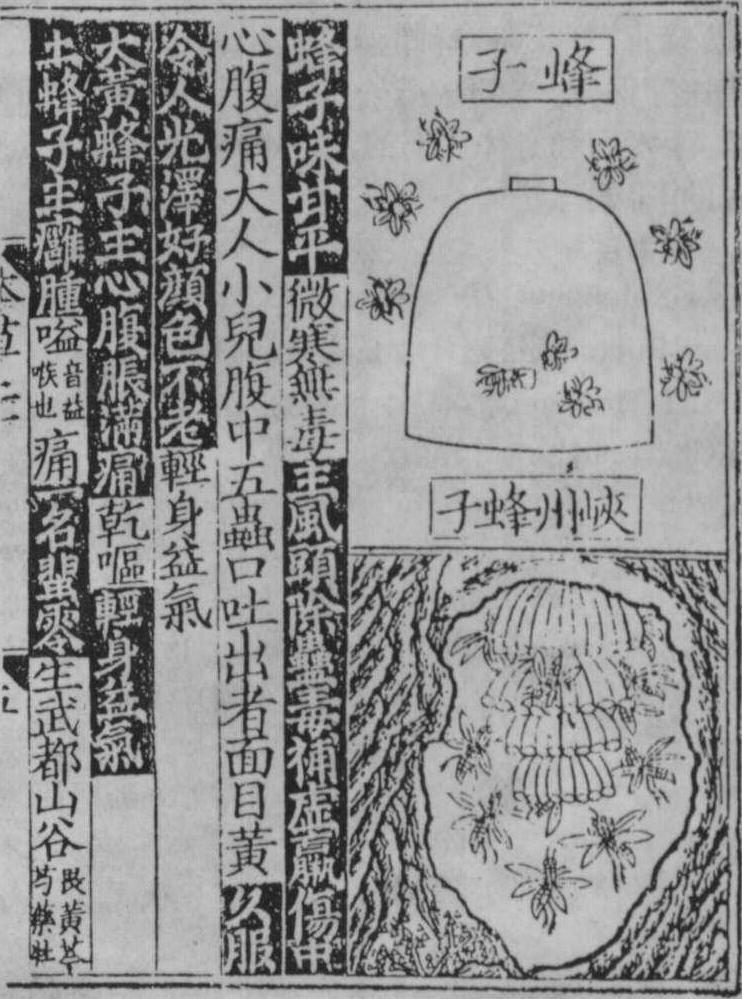 蜂子
峽州蜂子
蜂子味甘平微寒無毒主風頭除蠱毒補虛羸傷中
心腹痛大人小兒腹中五蟲口吐出者面目黃久服
令人光澤好顏色不老輕身益氣
大黃蜂子主心腹脹滿痛乾嘔輕身益氣
土蜂子主癰腫嗌音益喉也痛一名蜚零生武都山谷畏黃芩芍藥牡